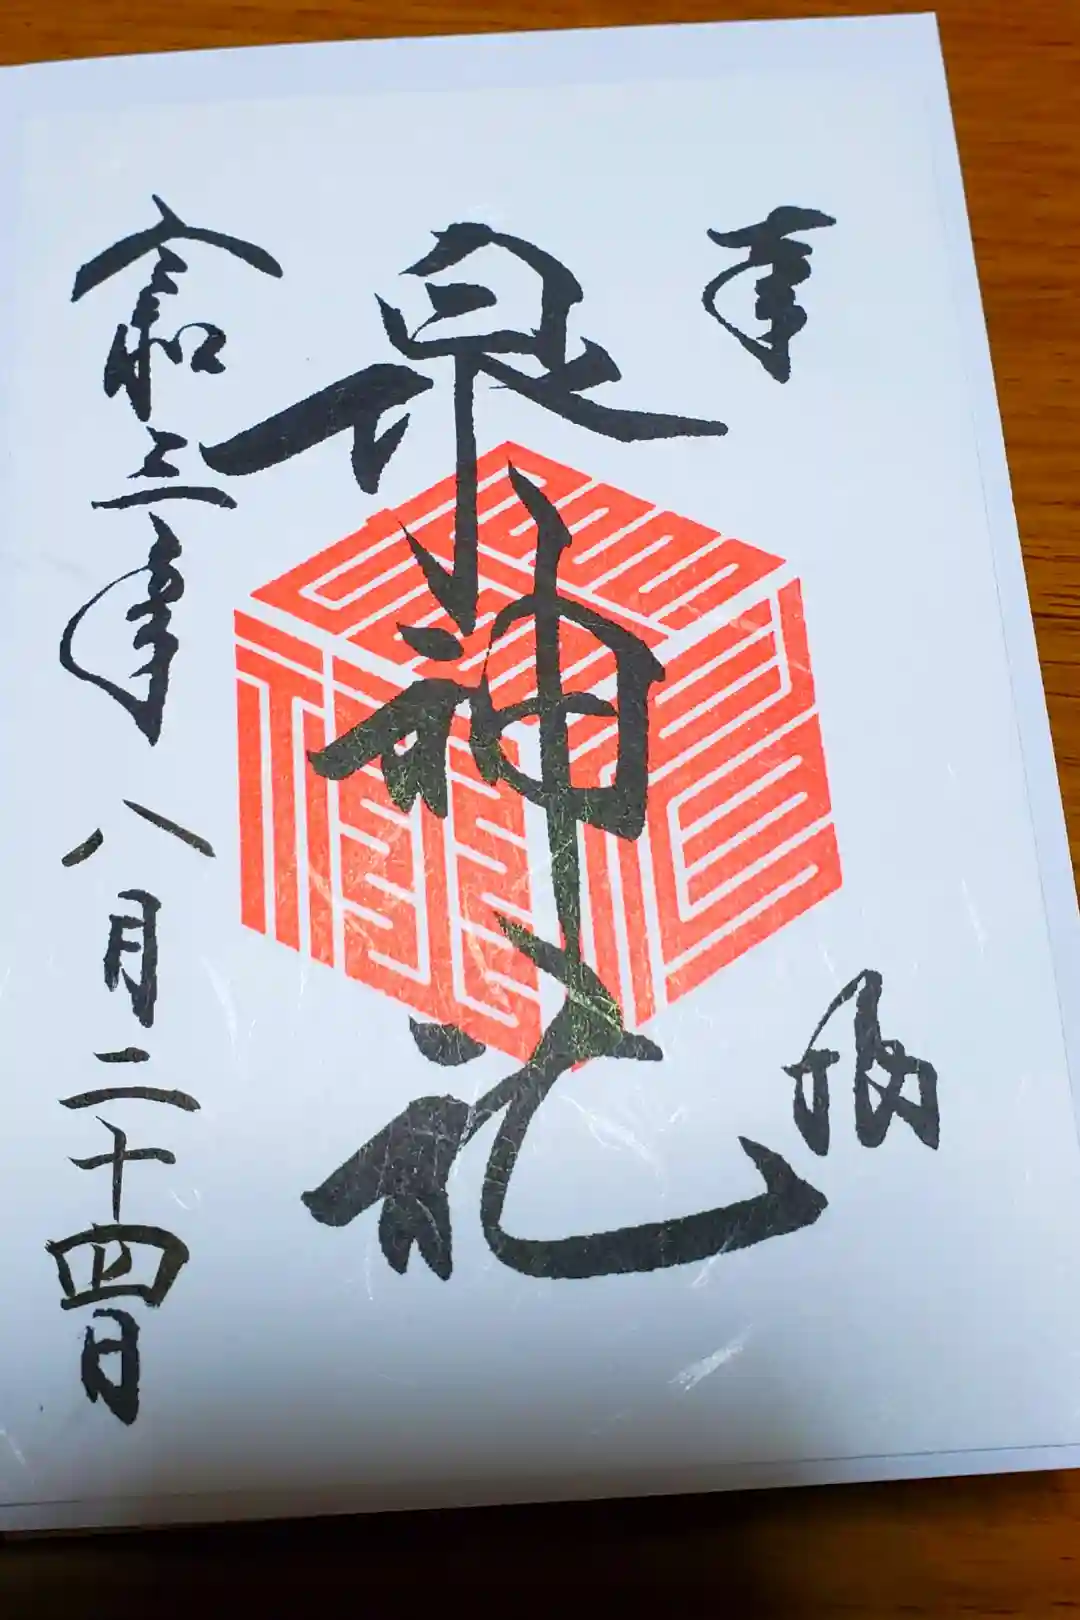 奉拝
泉神社
令和三年八月二十四日